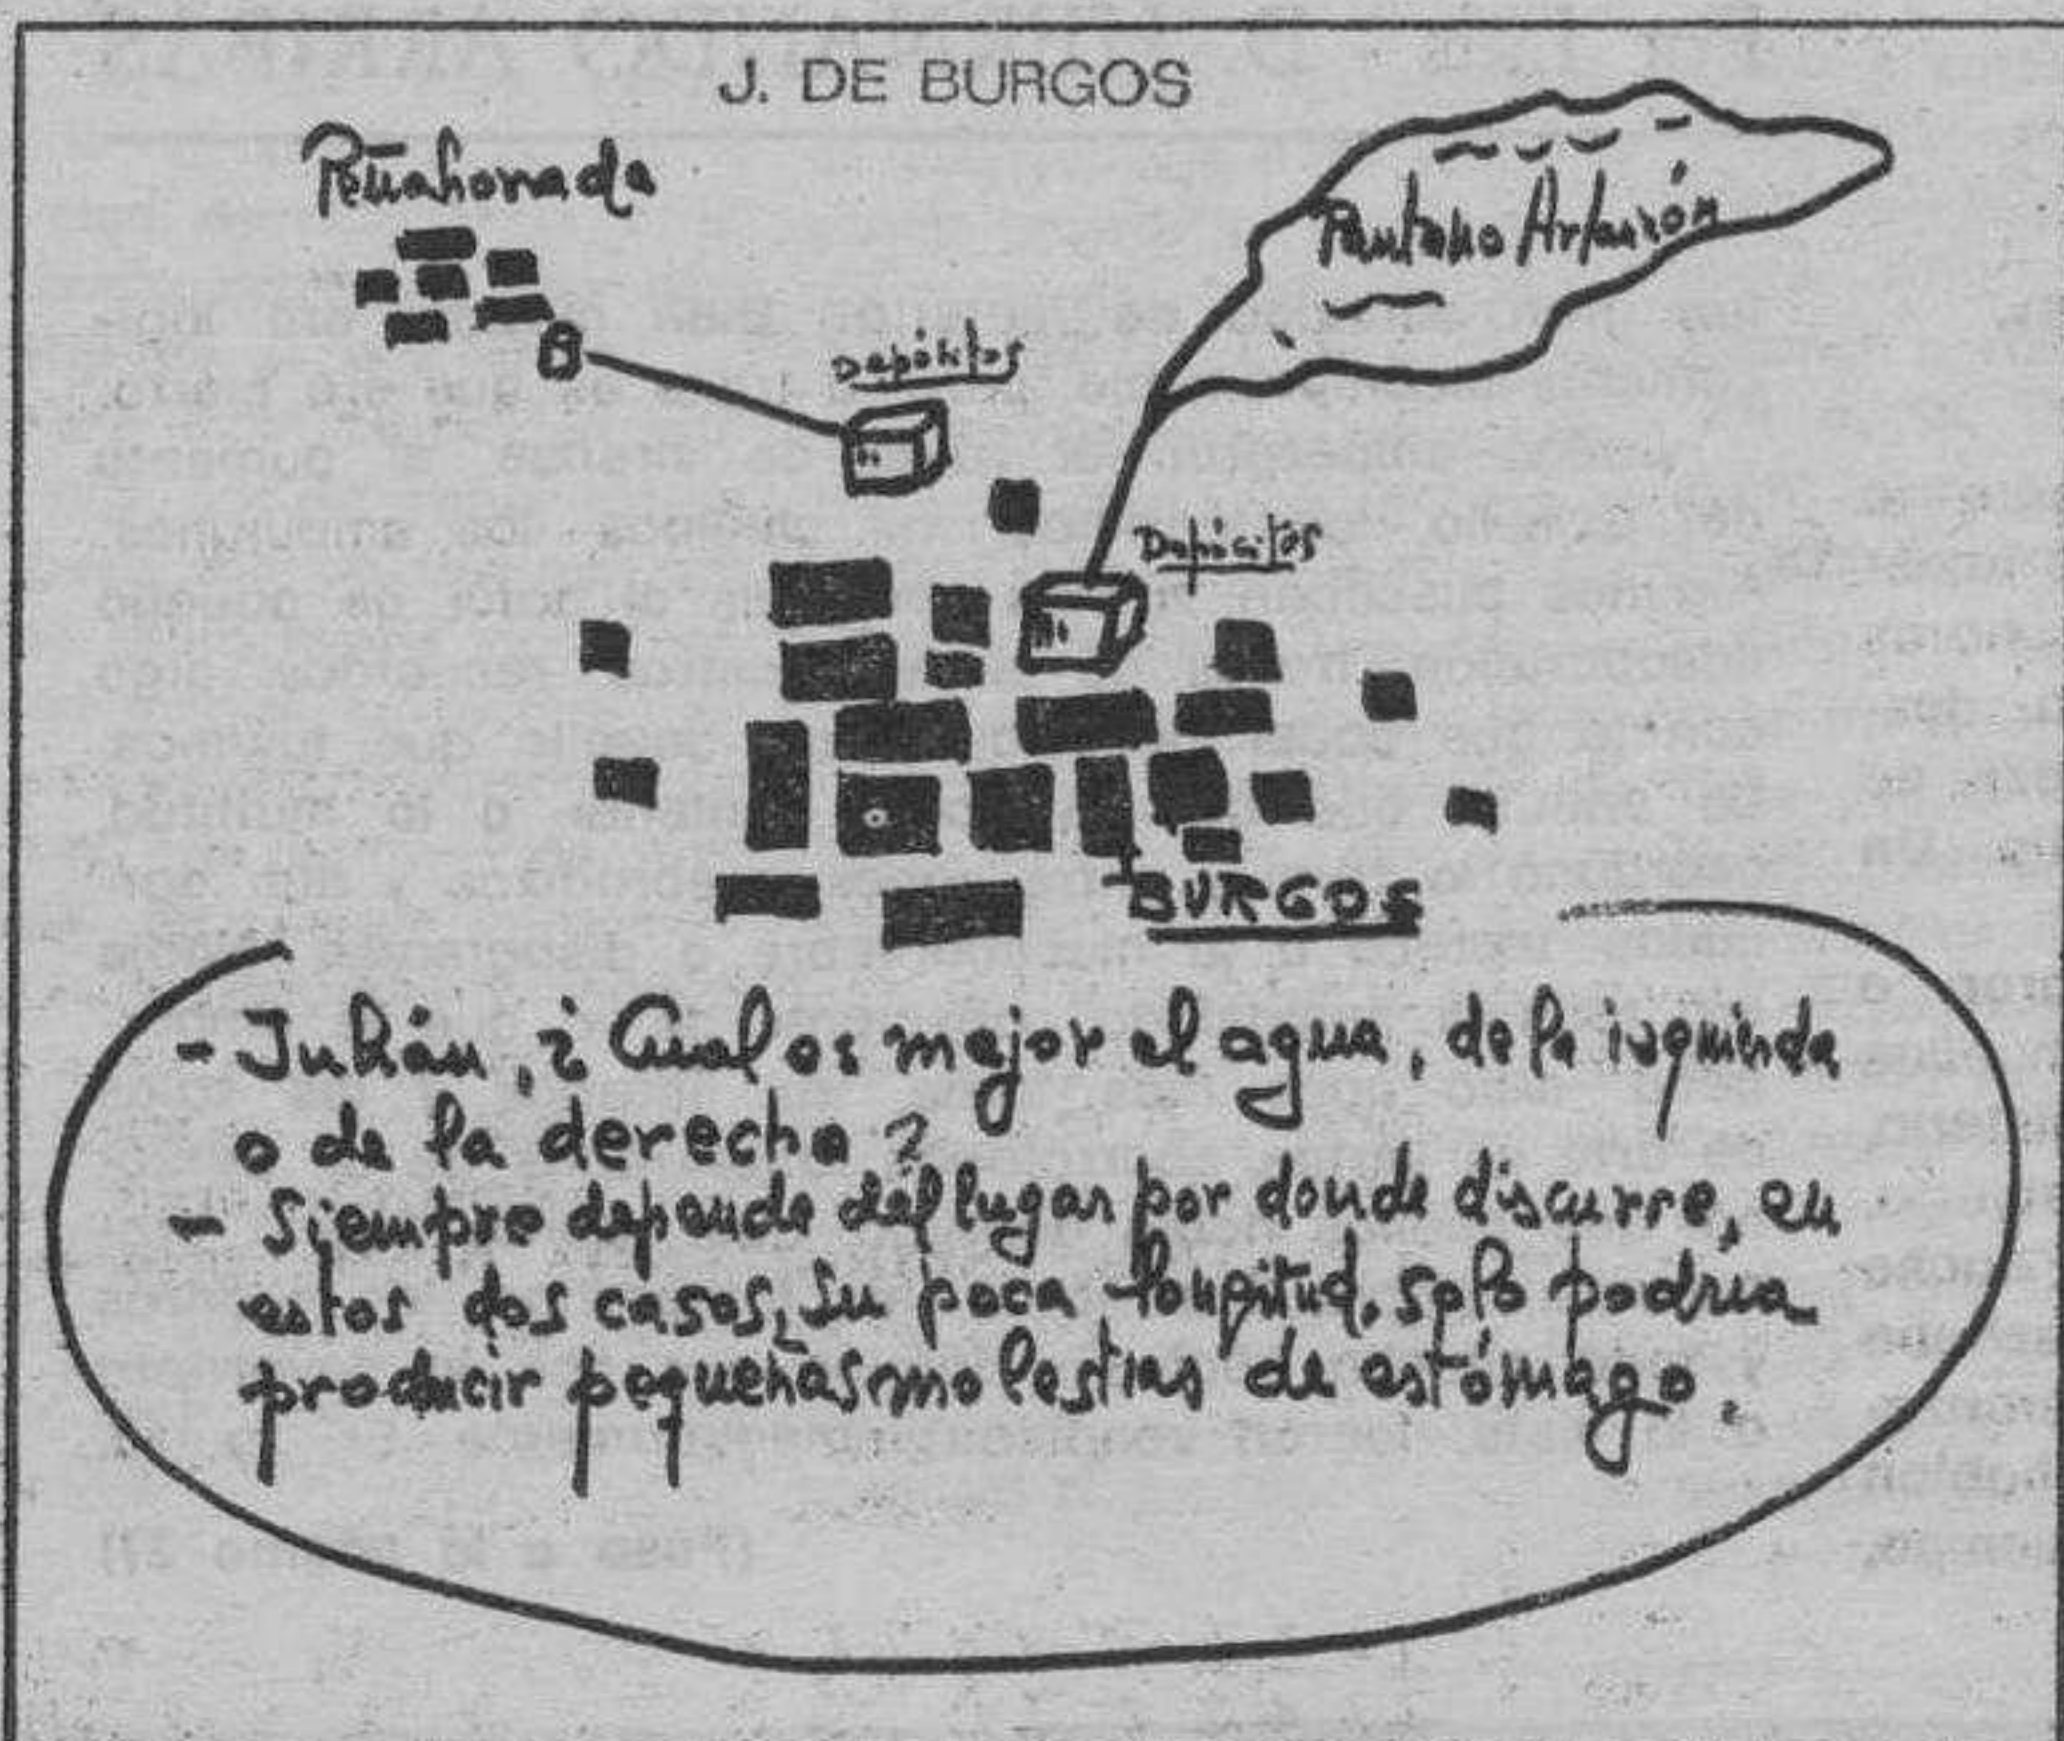 J. DE BURGOS
Peñahorada
Pantano Arlanzón
Depósitos
Depósitos
BURGOS
- Julián, ¿Cual es mejor el agua, de la izquierda
o de la derecha?
- Siempre depende del lugar por donde discurre, en
estos dos casos, su poca longitud, solo podría
producir pequeñas molestias de estómago.